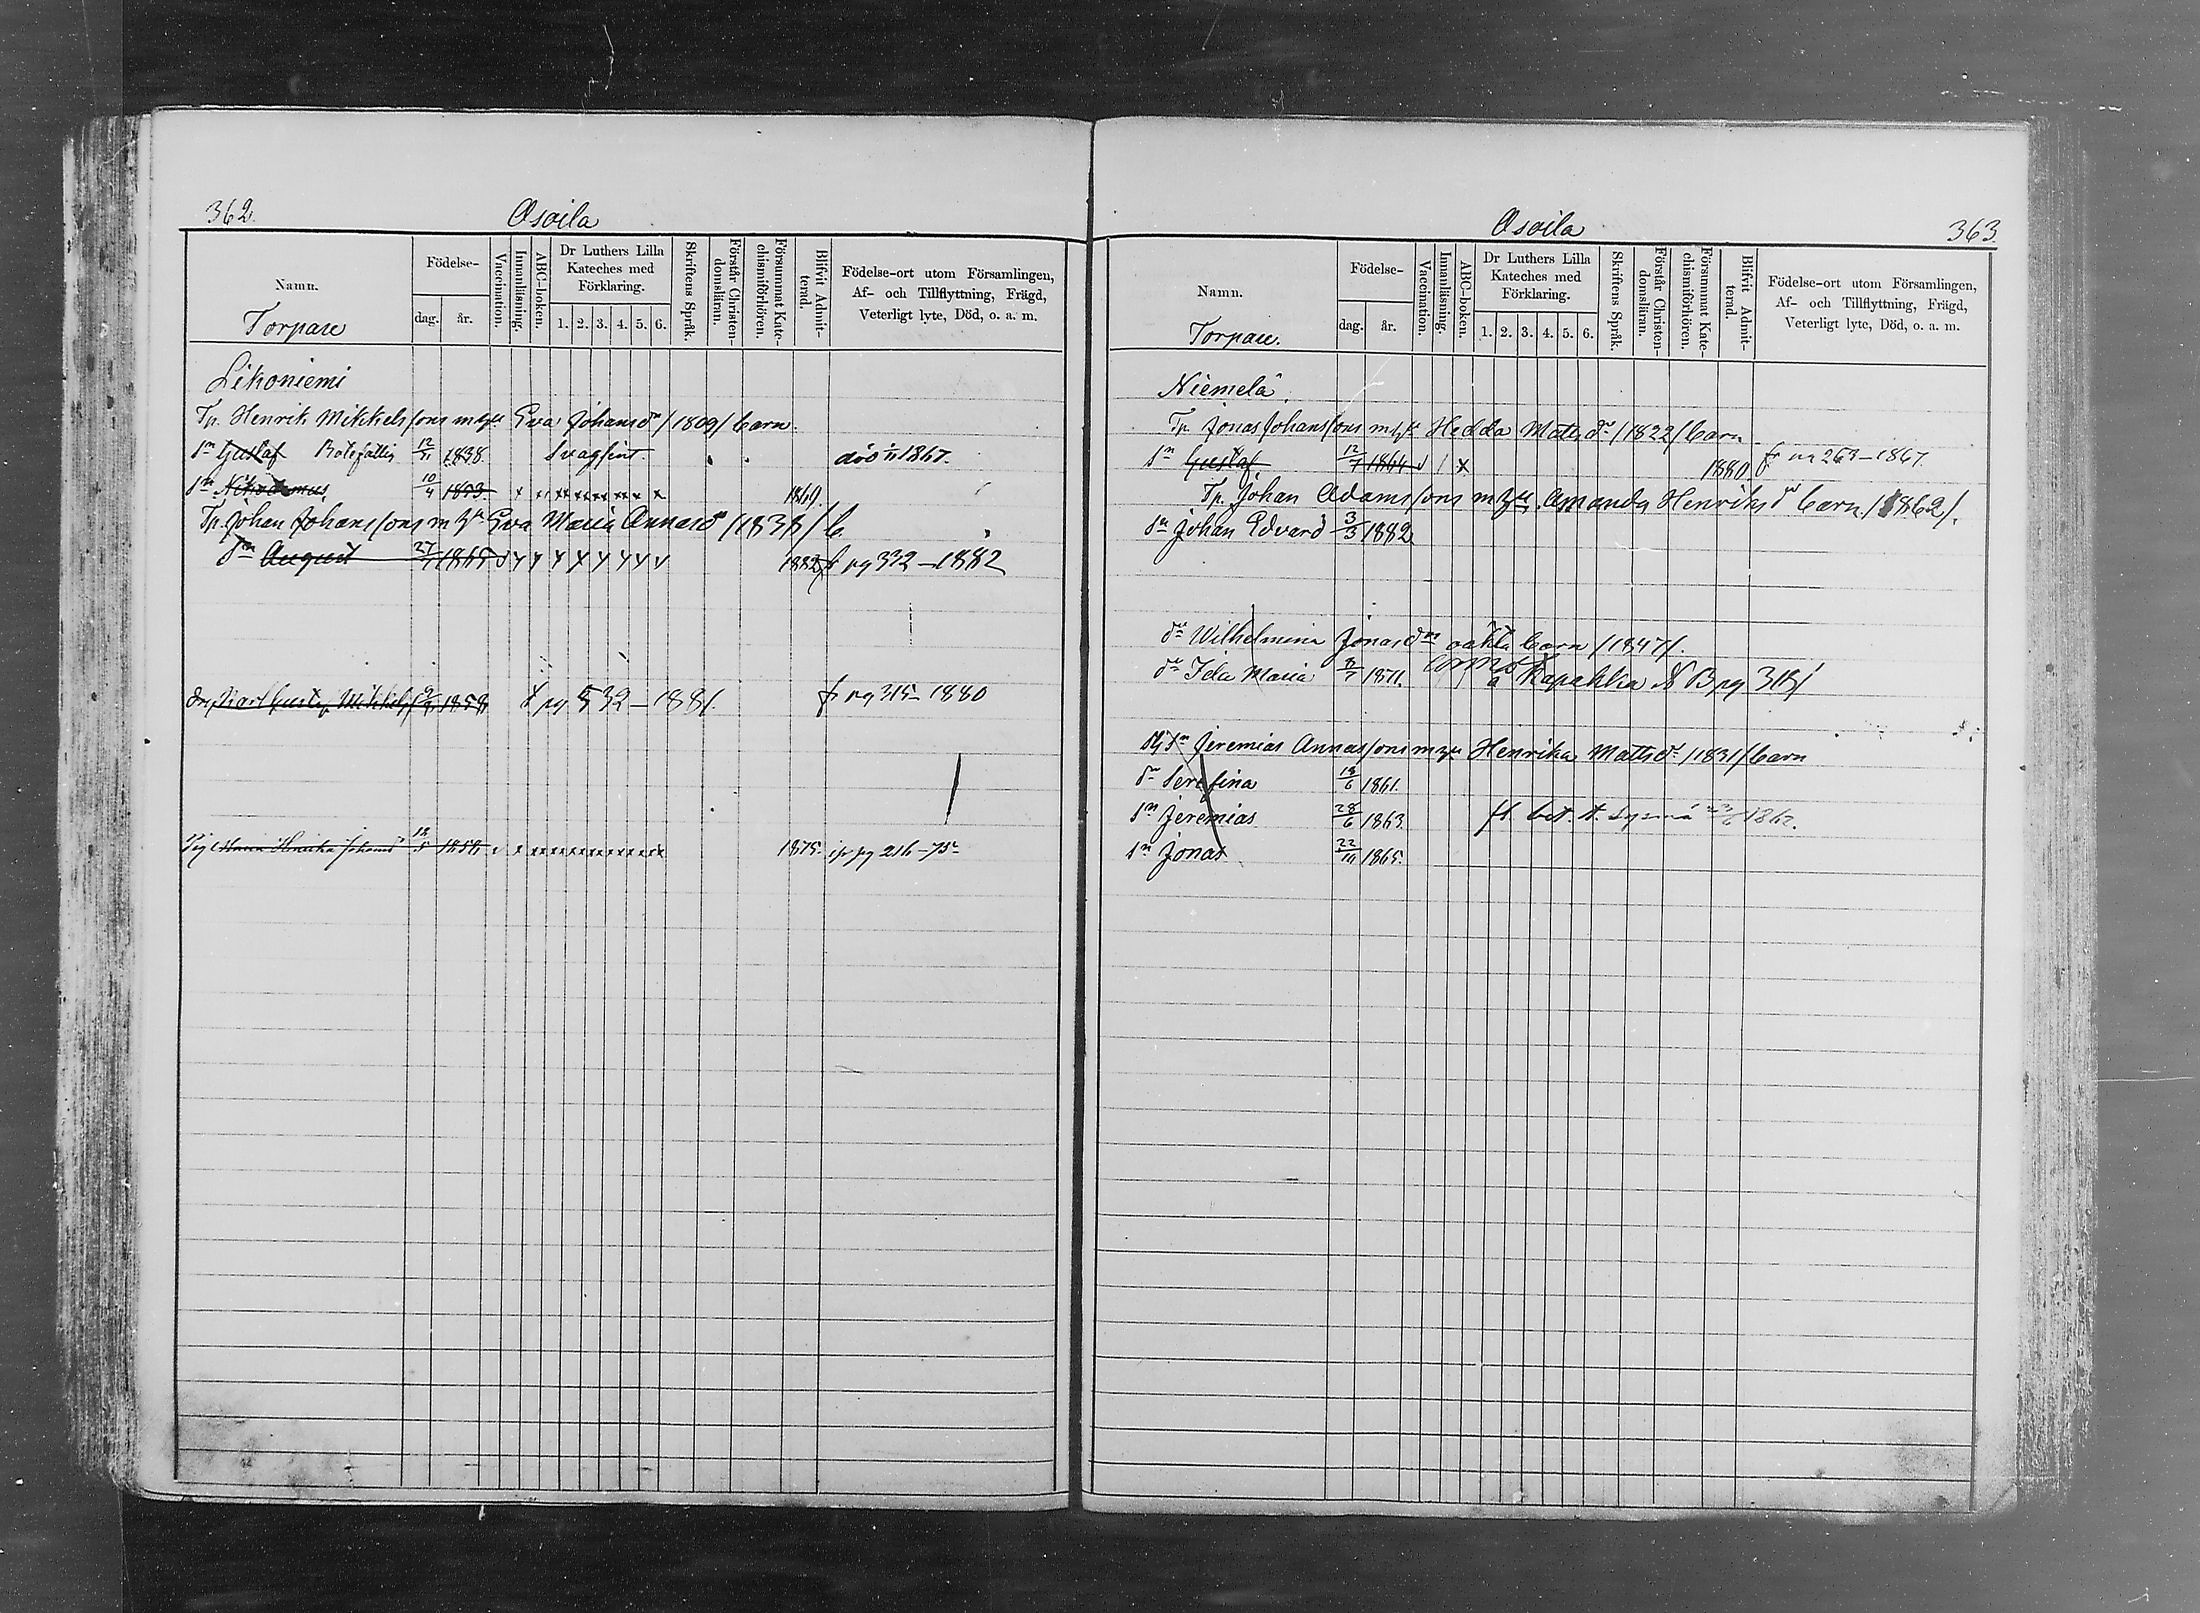 362.
Osoila
Namn.
Torpare
Födelse-
dag.
år.
Vaccination.
Innanläsning.
ABC-boken.
Dr Luthers Lilla
Kateches med
Förklaring.
1. 2. 3. 4. 5. 6.
Skriftens Språk.
Förstår Christen-
domsläran.
Försummat Kate-
chismiförhören.
Blifvit Admit-
terad.
Födelse-ort utom Församlingen,
Af- och Tillflyttning, Frägd,
Veterligt lyte, Död, o. a. m.
Likoniemi
Tp. Henrik Mikkelssons m hu Eva Johansdr /1809/ barn.
sn Gustaf Botsfällig 1838. Svagsint. 1867.
sn Nikodemus 10/4 1853 x 1869.
Tp. Johan Johanssons m hu Eva Maria Annasdr
sn August 27/7 1865 v x x x x x x x v 1882 fr pg 332-1882
Karl Gustaf Mikkels 1858 t pg 532-1881. fr pg 315-1880
Maria Henrika Johansdr 1858 v x 1875. pg 216-75
Osoila
363.
Namn.
Torpare.
Födelse-
dag.
år.
Vaccination.
Innanläsning.
ABC-boken.
Dr Luthers Lilla
Kateches med
Förklaring.
1. 2. 3. 4. 5. 6.
Skriftens Språk.
Förstår Christen-
domsläran.
Försummat Kate-
chismiförhören.
Blifvit Admit-
terad.
Födelse-ort utom Församlingen,
Af- och Tillflyttning, Frägd,
Veterligt lyte, Död, o. a. m.
Niemelä.
Tp. Jonas Johanssons m hu Hedda Matsdr /1822/ barn.
sn Gustaf 12/7 1864 v / x 1880 fr pg 263-1867.
Tp. Johan Adamssons m hu Amanda Henriksdr barn /1862/.
sn Johan Edvard 3/3 1882
dr Wilhelmina Jonasdrs oäkta barn /1847/.
dr Ida Maria 8/7 1871. Kapakka N B pg 313/
Jeremias Annassons m hu Henrika Matsdr /1831/ barn
dr Serafina 13/6 1861.
sn Jeremias 28/6 1863. fl. bet. t. Sysmä
sn Jonas 22/10 1865.